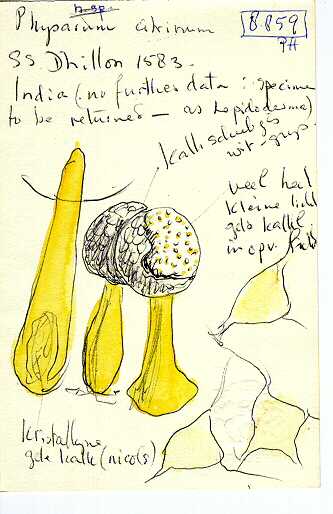 n. sp.
Physarum citrinum
8859
PH
SS. Dhillon 1583.
India (no further data : specimen
to be returned — as Lepidoderma)
Kalkschubjes
wit-grijs.
veel heel
kleine licht
gele kalk
in opv.
Kristallyne
gele kalk (nicols)